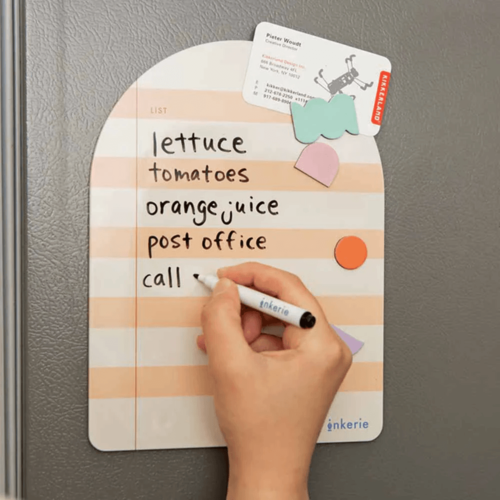 Pieter Woudt
Creative Director
New York, NY 10012
KIKKERLAND
LIST
lettuce
tomatoes
orange juice
post office
call
inkerie
inkerie